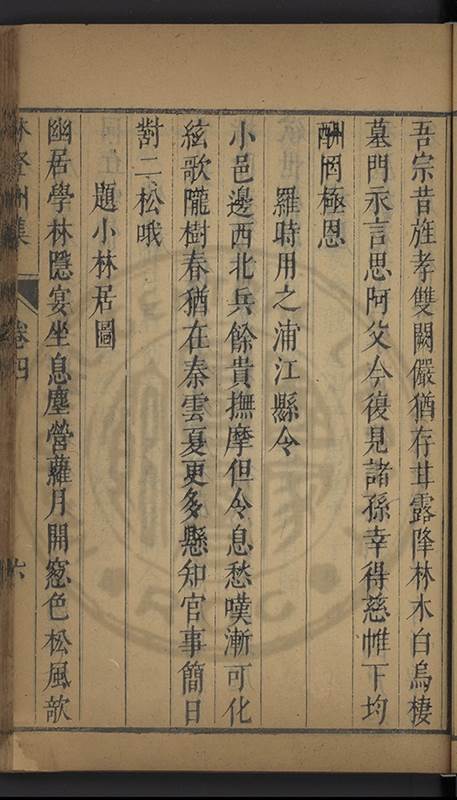 吾宗昔旌孝雙闕儼猶存甘露降林木白烏棲
墓門永言思阿父今復見諸孫幸得慈幃下均
酬罔極恩
羅時用之浦江縣令
小邑邊西北兵餘貴撫摩但令息愁嘆漸可化
絃歌隴樹春猶在秦雲夏更多懸知官事簡日
對二松哦
題小林居圖
幽居學林隱宴坐息塵營蘿月開窓色松風歕
林登州集
卷四
六